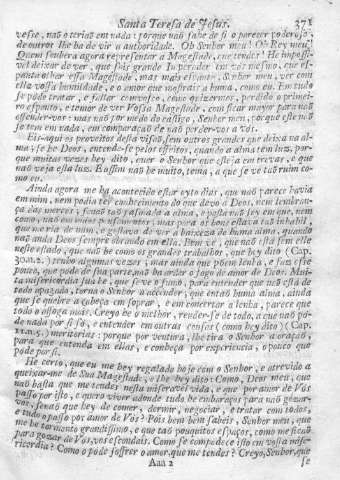 Santa Teresa de Jesus. 371
vesse, naõ o terias em nada: porque naõ sabe de si o parecer poderoso,
de outros lhe ha de vir a authoridade. Oh Senhor meu! Oh Rey meu!
Quem soubera agora representar a Magestade, que tendes! He impossi-
vel deixar de ver, que sois grande Imperador em vós mesmo, que es-
panta olhar essa Magestade, mas mais espanta, Senhor meu, ver com
ella vossa humildade, e o amor que mostrais a huma, como eu. Em tudo
se póde tratar, e fallar comvosco, como quizermos, perdido o primei-
ro espanto, e temor de ver vossa Magestade, com ficar mayor para naõ
offender-vos: mas naõ por medo do castigo, Senhor meu, porque este naõ
se tem em nada, em comparaçaõ de naõ perder-vos a vós.
Eis-aqui os proveitos desta visaõ, sem outros grandes que deixa na al-
ma, se he Deos, entende-se pelos effeitos, quando a alma tem luz, por-
que muitas vezes hey dito, quer o Senhor que esteja em trevas, e que
naõ veja esta luz. E assim naõ he muito, tema, a que se ve taõ ruim co-
mo eu.
Ainda agora me ha acontecido estar oyto dias, que naõ parece havia
em mim, nem podia ter conhecimento do que devo a Deos, nem lembran-
ça das mercês; senaõ taõ pasmada a alma, e posta naõ sey em que, nem
como, naõ em máos pensamentos; mas para os bons estava taõ inhabil,
que me ria de mim, e gostava de ver a baixeza de huma alma, quando
naõ anda Deos sempre obrando em ella. Bem vê, que naõ está sem elle
neste estado, que naõ he como os grandes trabalhos, que hey dito (Cap.
30.n.2.) tenho algumas vezes; mas ainda que poem lenha, e faz esse
pouco, que póde de sua parte, naõ ha arder o fogo de amor de Deos. Mui-
ta misericordia sua he, que se ve o fumo, para entender que naõ está de
todo apagado, torna o Senhor a accender, que entaõ huma alma, ainda
que se quebre a cabeça em soprar, e em concertar a lenha, parece que
todo o affoga mais. Creyo he o melhor, render-se de todo, a que naõ pó-
de nada por si só, e entender em outras cousas (como hey dito) (Cap.
11.n.5.) meritorias: porque por ventura, lhe tira o Senhor a oraçaõ,
para que entenda em ellas, e conheça por experiencia, o pouco que
póde por si.
He certo, que eu me hey regalado hoje com o Senhor, e atrevido a
queixar-me de Sua Magestade, e lhe hey dito: Como, Deos meu, que
naõ basta que me tendes nesta miseravel vida, e que por amor de Vós
passo por isto, e quero viver adonde tudo he embaraços para naõ gozar-
vos, senaõ que hey de comer, dormir, negociar, e tratar com todos,
e tudo o passo por amor de Vós? Pois bem bem sabeis, Senhor meu, que
me he tormento grandissimo, e que taõ pouquitos espaços, como me ficaõ
para gozar de Vós, vos escondais. Como se compadece isto em vossa mise-
ricordia? Como o póde soffrer o amor, que me tendes? Creyo, Senhor, que
Aaa 2 se